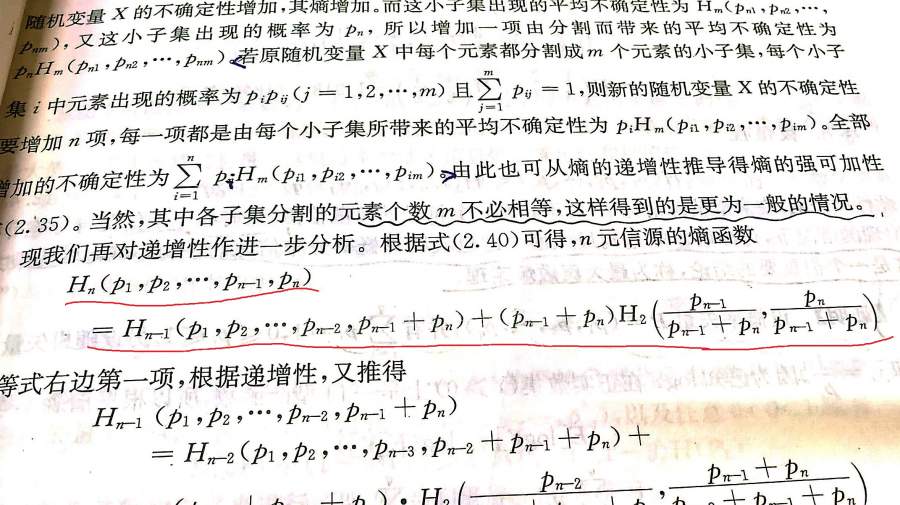 随机变量 X 的不确定性增加,其熵增加。而这小子集出现的平均不确定性为 Hₘ(pₙ₁,pₙ₂,⋯,
pₙₘ),又这小子集出现的概率为 pₙ,所以增加一项由分割而带来的平均不确定性为
pₙHₘ(pₙ₁,pₙ₂,⋯,pₙₘ)。若原随机变量 X 中每个元素都分割成 m 个元素的小子集,每个小子
集 i 中元素出现的概率为 pᵢpᵢⱼ(j = 1,2,⋯,m) 且 ∑_{j=1}^{m} pᵢⱼ = 1,则新的随机变量 X 的不确定性
要增加 n 项,每一项都是由每个小子集所带来的平均不确定性为 pᵢHₘ(pᵢ₁,pᵢ₂,⋯,pᵢₘ)。全部
增加的不确定性为 ∑_{i=1}^{n} pᵢHₘ(pᵢ₁,pᵢ₂,⋯,pᵢₘ)。由此也可从熵的递增性推导得熵的强可加性
(2.35)。当然,其中各子集分割的元素个数 m 不必相等,这样得到的是更为一般的情况。
现我们再对递增性作进一步分析。根据式(2.40)可得,n 元信源的熵函数
Hₙ(p₁,p₂,⋯,pₙ₋₁,pₙ)
= Hₙ₋₁(p₁,p₂,⋯,pₙ₋₂,pₙ₋₁ + pₙ) + (pₙ₋₁ + pₙ)H₂(pₙ₋₁/(pₙ₋₁ + pₙ), pₙ/(pₙ₋₁ + pₙ))
等式右边第一项,根据递增性,又推得
Hₙ₋₁ (p₁,p₂,⋯,pₙ₋₂,pₙ₋₁ + pₙ)
= Hₙ₋₂(p₁,p₂,⋯,pₙ₋₃,pₙ₋₂ + pₙ₋₁ + pₙ) +
H₂(pₙ₋₂, pₙ₋₁ + pₙ)